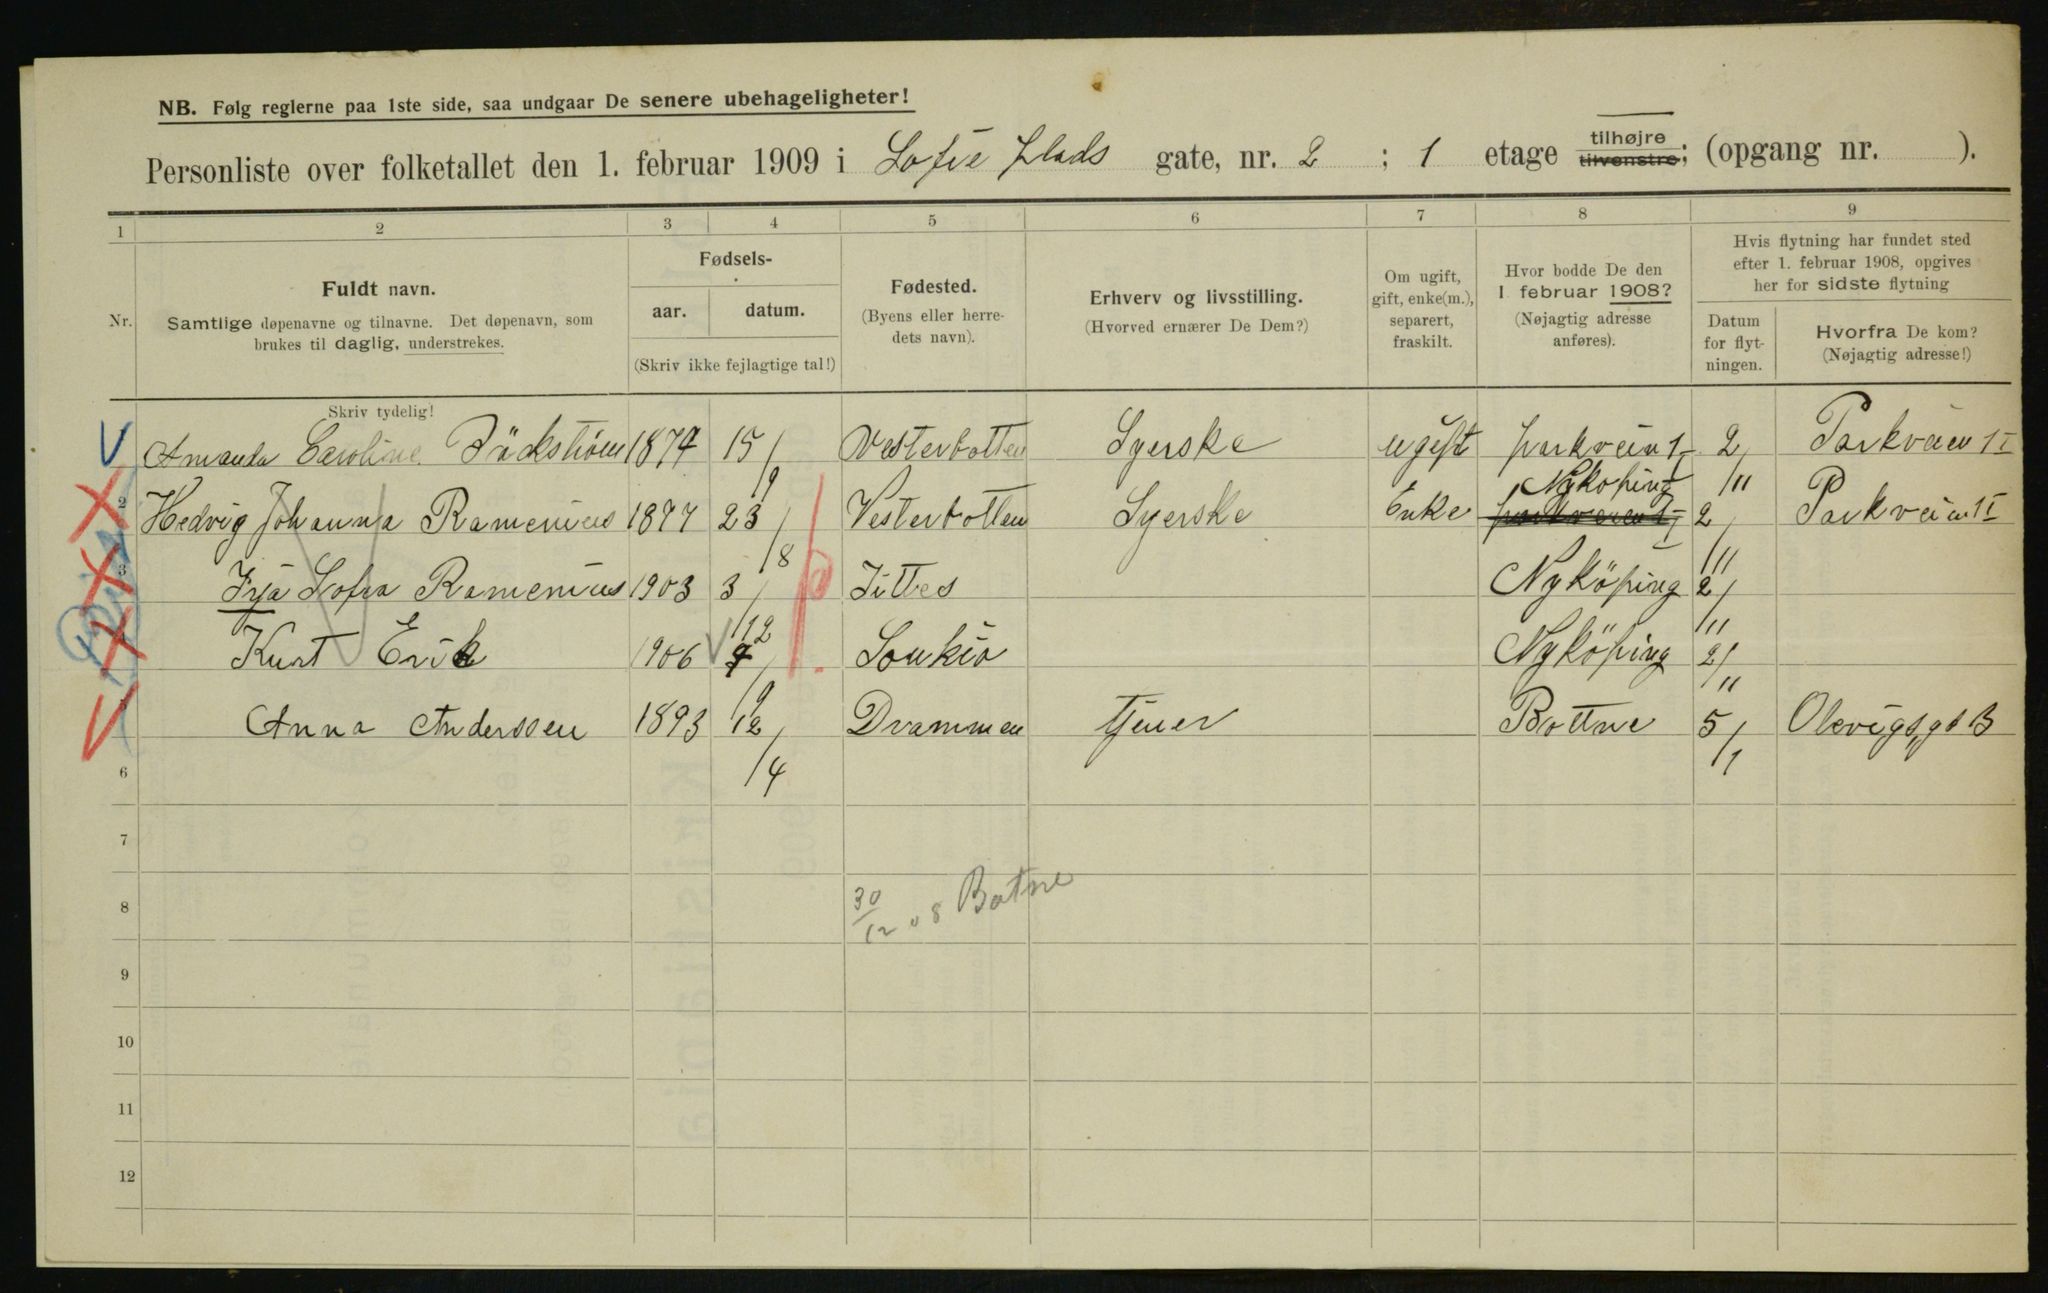 NB. Følg reglerne paa 1ste side, saa undgaar De senere ubehageligheter!
Personliste over folketallet den 1. februar 1909 i Sofie plads gate, nr. 2 ; 1 etage tilhøjre tilvenstre; (opgang nr. ).
1 2 3 4 5 6 7 8 9
Nr.
Fuldt navn.
Samtlige døpenavne og tilnavne. Det døpenavn, som
brukes til daglig, understrekes.
Skriv tydelig!
Fødsels-
aar. datum.
(Skriv ikke fejlagtige tal!)
Fødested.
(Byens eller herre-
dets navn).
Erhverv og livsstilling.
(Hvorved ernærer De Dem?)
Om ugift,
gift, enke(m.),
separert,
fraskilt.
Hvor bodde De den
1 februar 1908?
(Nøjagtig adresse
anføres).
Hvis flytning har fundet sted
efter 1. februar 1908, opgives
her for sidste flytning
Datum
for flyt-
ningen.
Hvorfra De kom?
(Nøjagtig adresse!)
Amanda Caroline Bäckstrøm 1874 15/9 Vesterbotten Syerske ugift parkveien 1 I 2/11 Parkveien 1 I
2 Hedvig Johanna Ramenius 1877 23/8 Vesterbotten Syerske Enke Nyköping parkveien 1 I 2/11 Parkveien 1 I
3 Sofia Ramenius 1903 3/12 Nyköping 2/11
Kurt Erik 1906 9/9 Nyköping 2/11
5 Anna Anderssen 1893 12/4 Drammen tjener Bottne 5/1
6
7
8 30/12 08 Botne
9
10
11
12